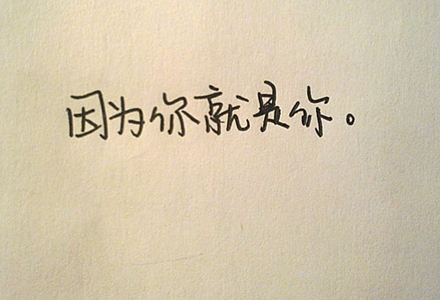 因为你就是你。